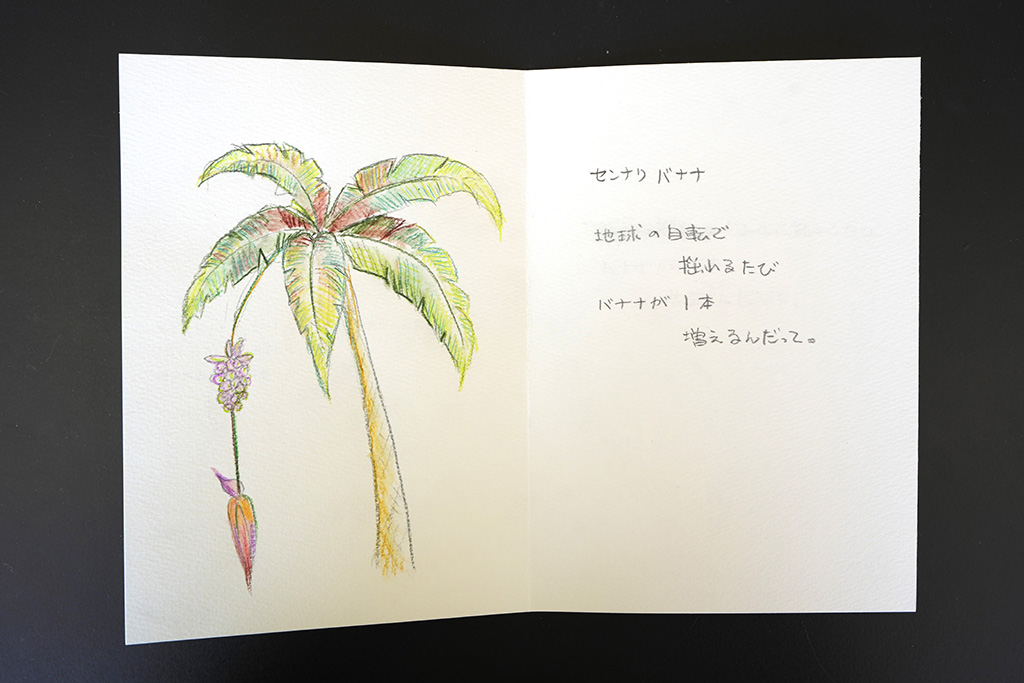 センナリ バナナ
地球の自転で
揺れるたび
バナナが 1本
増えるんだって。